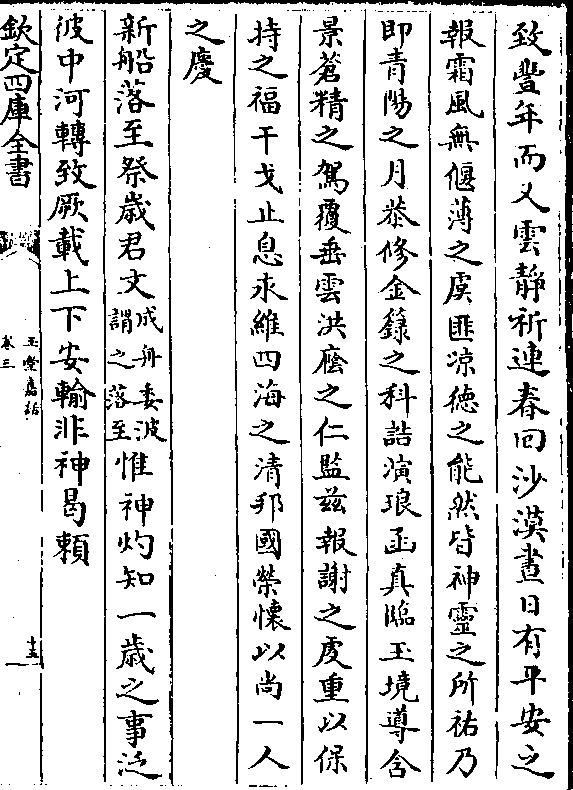 致豐年而乂雲靜祈連春回沙漠晝日有平安之
報霜風無偃薄之虞匪凉徳之能然皆神靈之所祐乃
即青陽之月恭修金籙之科誥演琅函真臨玉境導含
景蒼精之駕覆垂雲洪䕃之仁監兹報謝之䖍重以保
持之福干戈止息永維四海之清邦國榮懐以尚一人
之慶
新船落至祭嵗君文成舟委波謂之落至惟神灼知一歳之事泛
彼中河轉致厥載上下安輸非神曷頼
欽定四庫全書
玉堂嘉話
卷三
十五